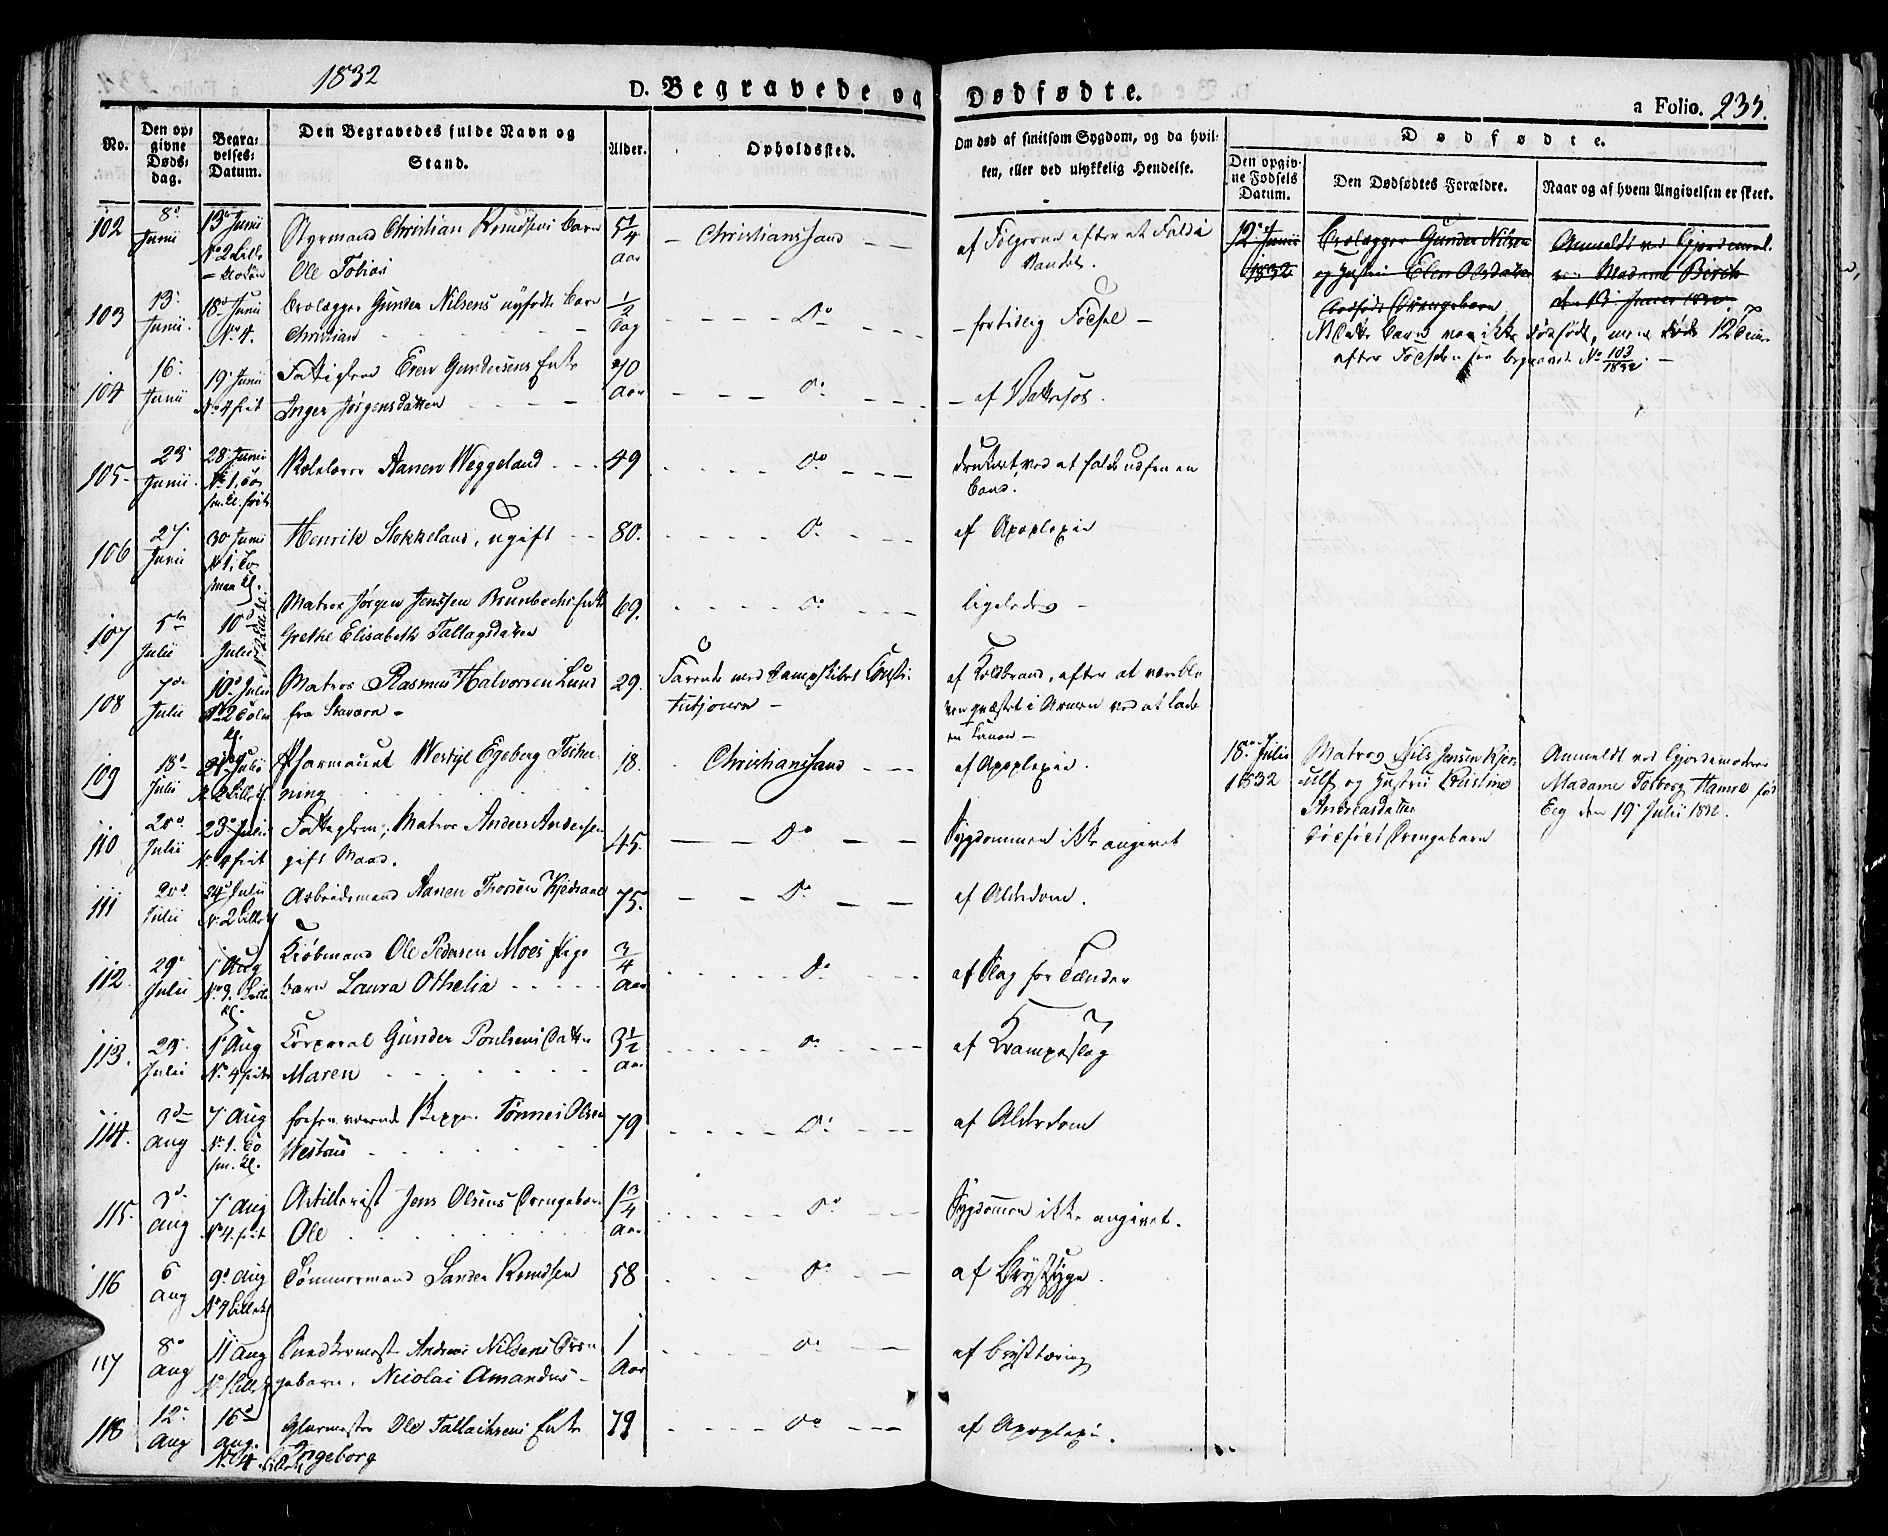 1832
D. Begravede og Dødfødte.
a Folio. 235.
No.
Den opgivne Døds-dag.
Begravelses-Datum.
Den Begravedes fulde Navn og Stand.
Alder.
Opholdssted.
Om død af smitsom Sygdom, og da hvilken, eller ved ulykkelig Hendelse.
Dødfødte.
Den opgivne Fødsels Datum.
Den Dødfødtes Forældre.
Naar og af hvem Angivelsen er skeet.
102
8de Junii
13 Junii
Styrmand Christian Knudsens Barn
Ole Tobias
5/4 Aar
Christianssand
af Følgerne efter at falde i Vandet.
12 Junii 1832
Brolægger Gunder Nilsen
og Hustru Elen Olsdatter
Anmeldt ved Gjordemoder
Madame Birch
103
13 Junii
18 Junii No 4.
Brolægger Gunder Nilsens nyfødte Barn
Christian
1/2 Dag
Do
fortidlig Fødsel
Barn var ikke dødfødt, men døde 12 Timer
efter Fødselen see begravede No 103/1832
104
16 Junii
19 Junii No 4 frit
Fattiglem Even Gundersens Enke
Inger Jørgensdatter
70 Aar
Do
af Vattersot.
105
23 Junii
28 Junii
Aanen Weggeland
49
Do
druknet, ved at falde ud fra en
Baad.
106
27 Junii
30 Junii
Henrik Stokkeland, ugift
80.
Do
af Apoplexie
107
5te Julii
10de Julii
Matros Jørgen Jenssen Brunbechs Enke
Grethe Elisabeth Tallagsdatter
69.
Do
ligeledes
108
7de Julii
10de Julii
Matros Rasmus Halvorsen Lund
fra Staværn
29.
Farende med Dampskibet Constitutionen
af Koldbrand, efter at være bleven
qvæstet i Armen ved at lade
en Kanon
109
18de Julii
Julii
Pharmaceut Westye Egeberg Tscherning
18.
Christianssand
af Apoplexie.
18. Julii 1832
Matros Nils Jensen
og Hustru Christine
Andreasdatter
dødfødt Drengebarn
Anmeldt ved Gjordemoder
Madame Tolborg Hamre
den 19 Julii 1832.
110
20de Julii
23de Julii No 4 frit
Fattiglem, Matros Anders Andersen
gift Mand.
45.
Do
Sygdommen ikke angivet
111
20de Julii
24 Julii
Arbeidsmand Aanen Thorsen
75.
Do
af Alderdom.
112
29de Julii
1 Aug
Kiøbmand Ole Pedersen Moes Pigebarn
Laura Othelia
3/4 Aar
Do
af Slag for Tænder
113.
29 Julii
1 Aug No 4 frit
Corporal Gunder Poulsens Datter
Maren
3 1/2 Aar
Do
af Krampeslag
114.
3de Aug
7 Aug
forhenværende Skipper Tønnes Olsen
79
Do
af Alderdom
115.
3de Aug
7 Aug No 4. frit
Artillerist Jens Olsens Drengebarn
Ole
1 3/4 Aar
Do
Sygdommen ikke angivet.
116
6 Aug
9de Aug
Tømmermand Sander Knudsen
58
Do
af Brystsyge.
117
8de Aug
11 Aug
Snedkermest. Andreas Nilsens Drengebarn,
Nicolai Amandus
1 Aar
Do
af Brysttæring
118
12 Aug
16de Aug.
Glarmester Ole Tallachsens Enke
Ingeborg
79
Do
af Apoplexi.